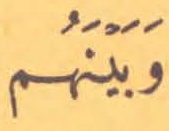 وَبَيْنَهُم